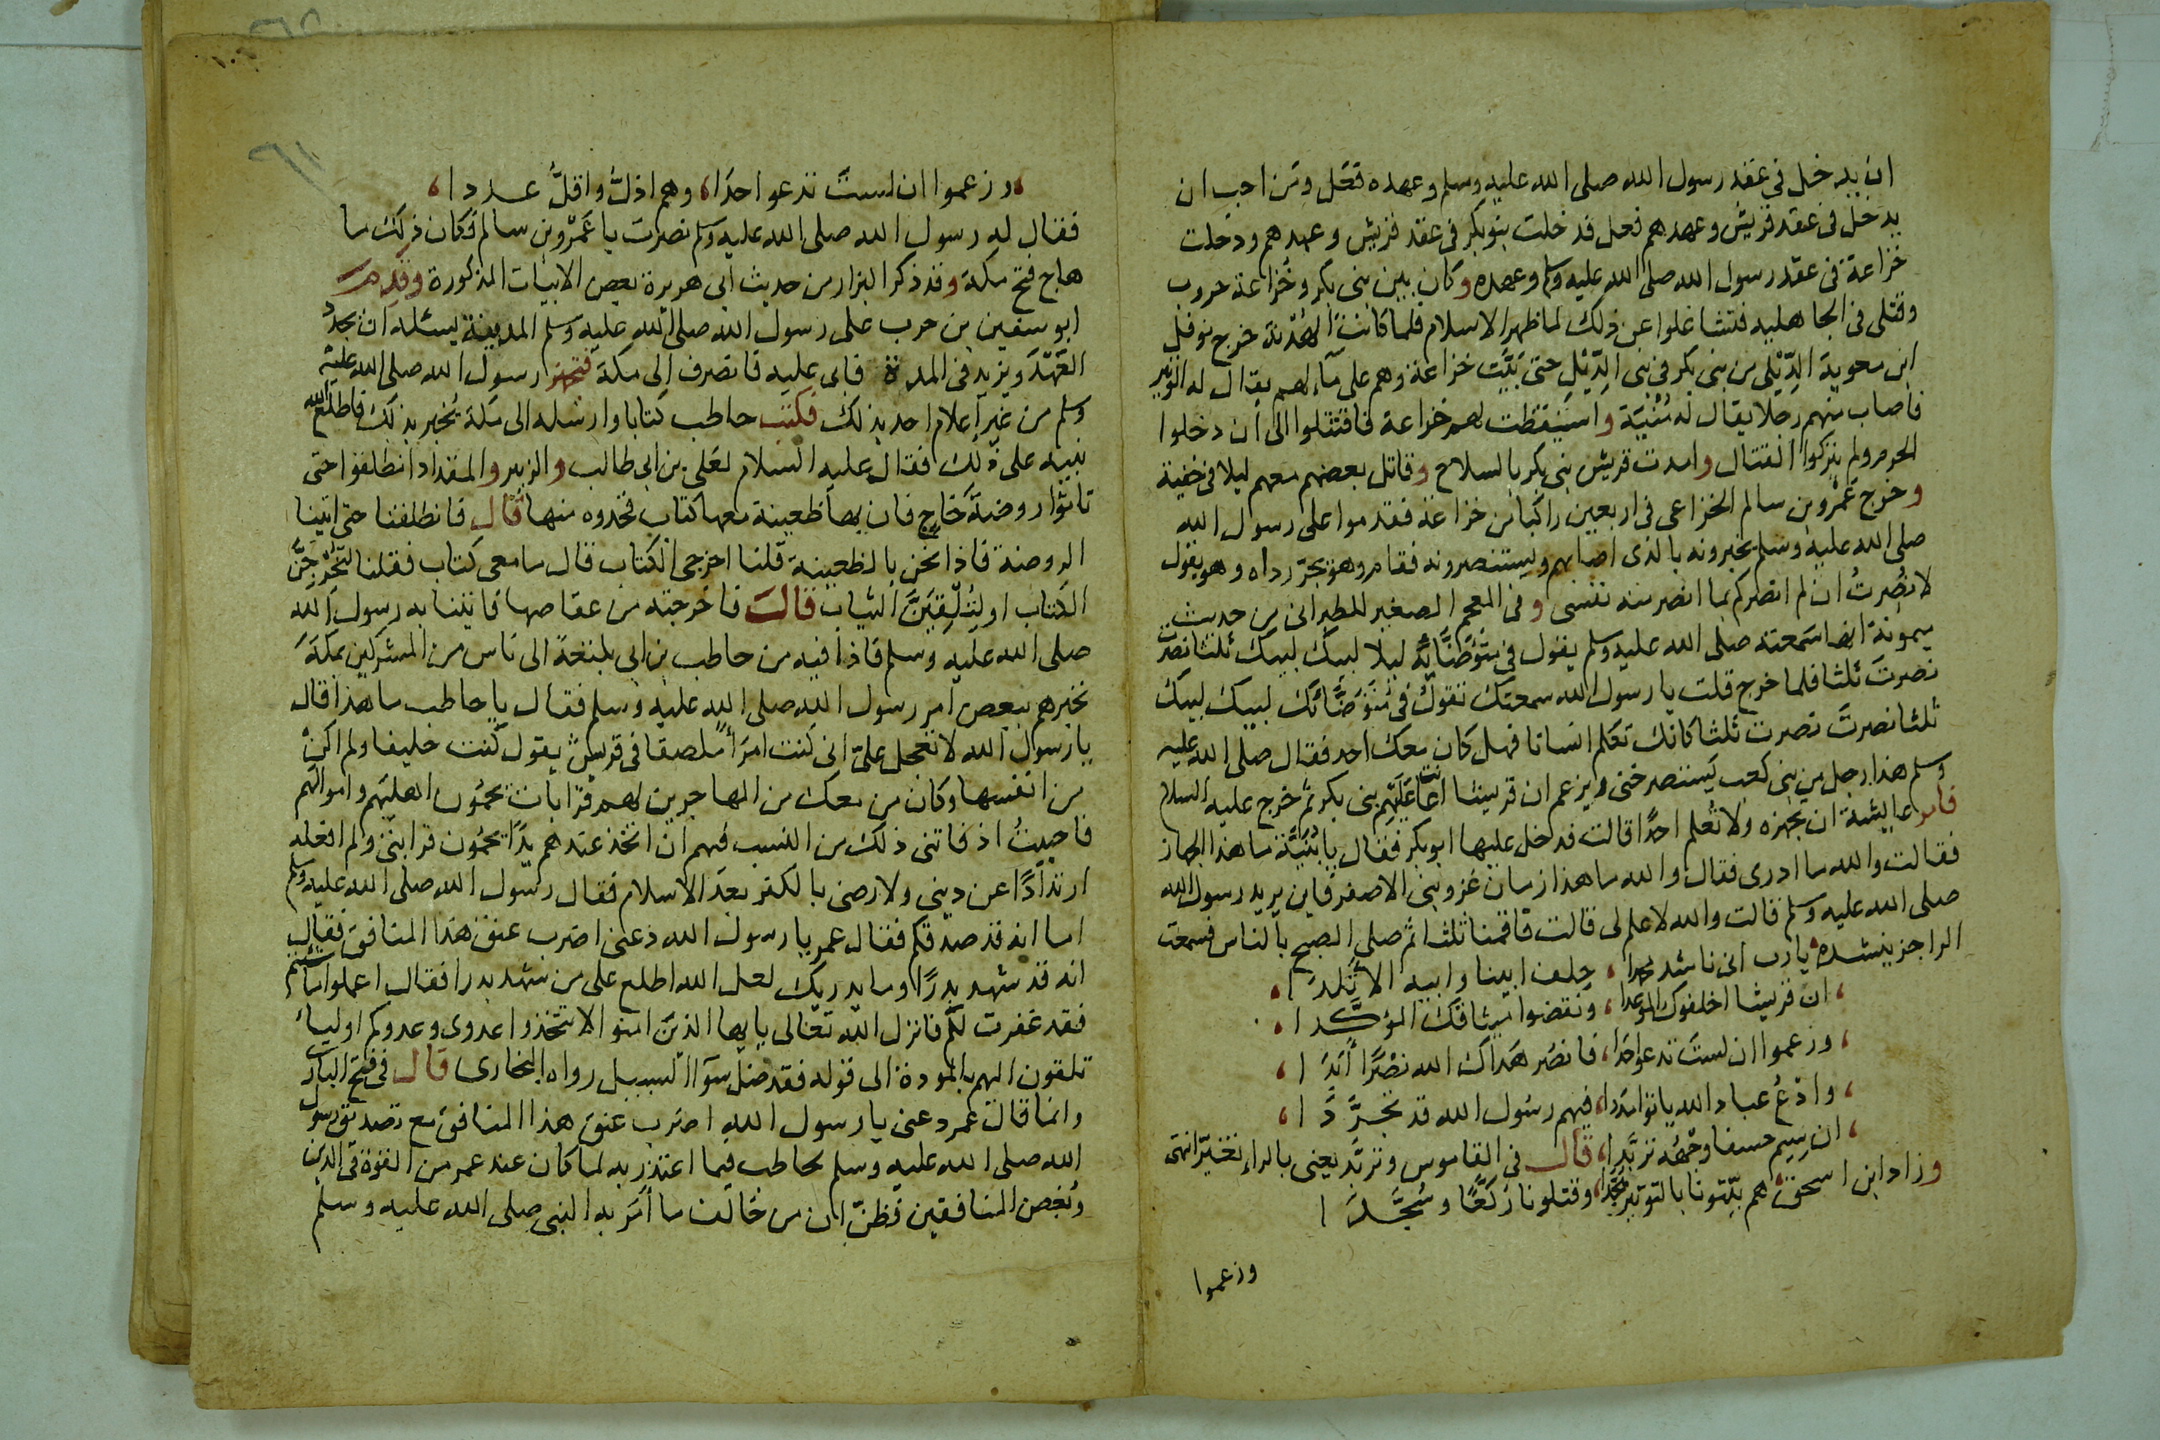 ان يدخل في عقد رسول الله صلى الله عليه وسلم وعهده فعل ومن احب ان
يدخل في عقد قريش وعهدهم فعل فدخلت بنو بكر في عقد قريش وعهدهم ودخلت
خزاعة في عقد رسول الله صلى الله عليه وسلم وعهده وكان بين بني بكر وخزاعة حروب
وقتلى في الجاهلية فتشاغلوا عن ذلك لما ظهر الاسلام فلما كانت الهدنة خرج نوفل
ابن معوية الدِّيْلي من بني بكر في بني الدّيْلِ حتى بَيَّت خزاعة وهم على مآء لهم يقال له الوتير
فاصاب منهم رجلا يقال له مُنَبِّه واستيقظت لهم خزاعة فاقتتلوا الى ان دخلوا
الحرم ولم يتركوا القتال وامدت قريش بني بكر بالسلاح وقاتل بعضهم معهم ليلا في خفية
وخرج عَمْرو بن سالم الخزاعي في اربعين راكبا من خزاعة فقدموا على رسول الله
صلى الله عليه وسلم يخبرونه بالذي اصابهم ويستنصرونه فقام وهو يجرّ رداه وهو يقول
لا نُصِرتُ ان لم انصركم بما انصر منه نفسي وفي المعجم الصغير للطبراني من حديث
ميمونة انها سمعته صلى الله عليه وسلم يقول في مُتَوضّائه ليلا لبيك لبيك ثلثا نصرت
نصرتَ ثلثا فلما خرج قلت يا رسول الله سمعتك تقول في مُتَوَضَّائك لبيك لبيك
ثلثا نصرتَ نصرت ثلثا كانك تكلم انسانا فهل كان معك احد فقال صلى الله عليه
وسلم هذا رجل من بني كعب يستنصرخني ويزعم ان قريشا اعانت عَلَيْهم بني بكر ثم خرج عليه السلام
فامر عايشة ان تجهزه ولا تُعْلم احدًا قالت فدخل عليها ابو بكر فقال يا بُنَيَّة ما هذا الجهاز
فقالت والله ما ادرى فقال والله ما هذا زمان غزو بني الاصفر فاين يريد رسول الله
صلى الله عليه وسلم قالت والله لا علم لي قالت فاقمنا ثلثا ثم صلى الصبح بالناس فسمعت
الراجز ينشده يا رب اني ناشد محمدا ، حِلف ابينا وابيه الاتلدا ،
، ان قريشا اخلفوك الموعدا ، ونقضوا ميثاقك المؤكّدا ،
، وزعموا ان لستَ تدعو احدا ، فانصر هداك الله نصْرًا اَيَّدَا ،
، وادْعُ عباد الله ياتوا مددا ، فيهم رسُول الله قد تجرَّدَا ،
، ان سِيم خسفا وجْهُه تربّدا ، قال في القاموس وتربّد يعنى بالراء تغيّر انتهى
وزاد ابن اسحق ، هم بيّتونا بالوتير هُجَّدا ، وقتلونا رُكّعًا وسُجَّدَا
وزعموا
، وزعموا ان لستَ تدعو احدًا ، وهم اذلّ واقلّ عددا ،
فقال له رسول الله صلى الله عليه وسلم نصرت يا عَمْرو بن سالم فكان ذلك ما
هاج فتح مكة وقد ذكر البزار من حديث ابي هريرة بعض الابيات المذكورة وقدم
ابو سفين بن حرب على رسول الله صلى الله عليه وسلم المدينة يسئله ان يجدد
العَهْدَ ويزيد في المدة فابى عليه فانصرف الى مكة فتجهز رسول الله صلى الله عليه
وسلم من غير اعلام احد بذلك فكتب حاطب كتابا وارسله الى مكة يُخبر بذلك فاطلع الله
نبيه على ذلك فقال عليه السلام لعَلي بن ابي طالب والزبير والمقداد انطلقوا حتى
تاتوا روضة خاخ فان بها ظعينة معها كتاب فخذوه منها قال فانطلقنا حتى اتينا
الروضة فاذا نحن بالظعينة قلنا اخرجي الكتاب قال ما معى كتاب فقلنا لتُخْرِجِنَّ
الكتاب او لتُلْقِيَنَّ الثياب قالت فاخرجته من عقاصها فاتينا به رسول الله
صلى الله عليه وسلم فاذا فيه من حاطب بن ابي بلتعةَ الى ناس من المشركين بمكة
نخبرهم ببعض امر رسول الله صلى الله عليه وسلم فقال يا حاطب ما هذا قال
يا رسول الله لا تعجل علىّ اني كنت امرَأً ملصقا في قريش يقول كنت حليفا ولم اكنْ
من انفسها وكان من معك من المهاجرين لهم قرابات يحمُون اهليهم واموالهم
فاحببتُ اذ فاتني ذلك من النسب فيهم ان اتخذ عندهم يدًا يحمُون قرابتي ولم افعله
ارتدادًا عن ديني ولا رضى بالكفر بعد الاسلام فقال رسُول الله صلى الله عليه وسلم
اما انه قد صدقكم فقال عمر يا رسول الله دعني اضرب عنق هذا المنافق فقال
انه قد شهد بدرًا وما يدريك لعل الله اطلع على من شهد بدرا فقال اعملوا ما شئتم
فقد غفرت لكم فانزل الله تعالى يا يها الذين امنوا لا تتخذوا عدوي وعدوكم اولياء
تلقون اليهم بالمودة الى قوله فقد ضلّ سوآء السبيل رواه البخارى قال في فتح البارى
وانما قال عمر دعني يا رسول الله اضرب عنق هذا المنافق مع تصديق رسول
الله صلى الله عليه وسلم لحاطب فيما اعتذر به لما كان عند عمر من القوة في الدين
وبُغض المنافقين فظنّ ان من خالف ما اَمَر به النبي صلى الله عليه وسلم